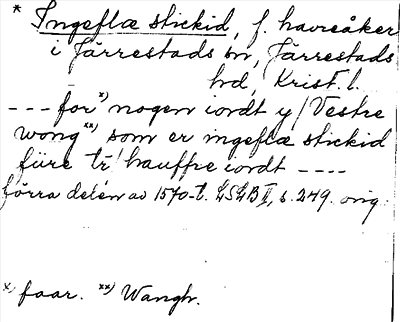 * Ingeflæ stickid, f. havreåker
i Järrestads sn, Järrestads
hd, Krist. l.
--- for x) nogen iordt y/ Vestre
wong xx) som er ingeflæ stickid
füre tr/ hauffre iordt ----
förra delen av 1570-t. LSLB II, s. 249. orig.
x) faar. xx) Wangh.